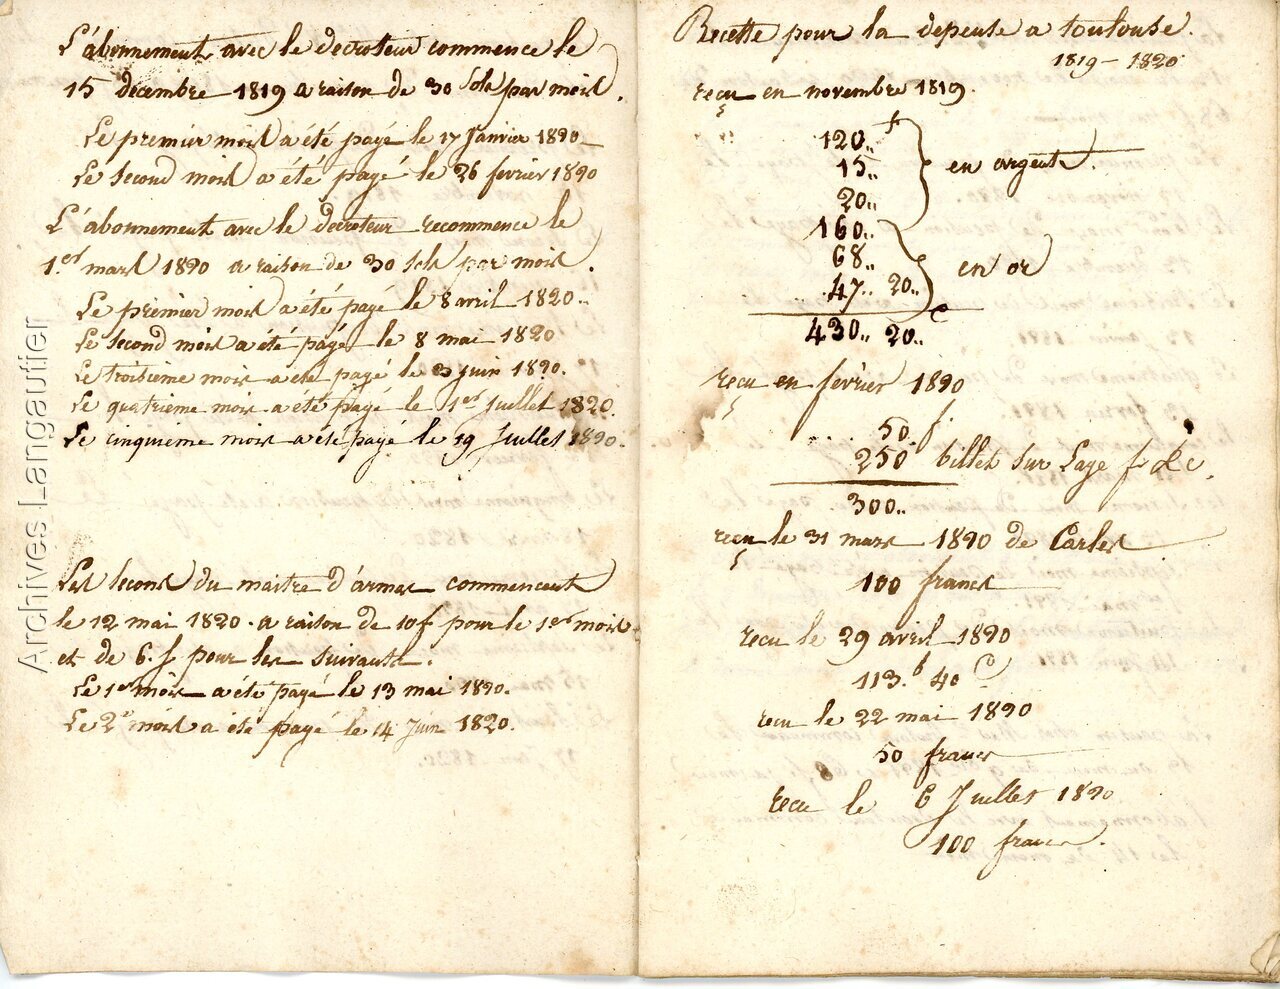 L'abonnement avec le decroteur commence le
15 decembre 1819 a raison de 30 sols par mois.
Le premier mois a été payé le 17 Janvier 1820
Le second mois a été payé le 26 fevrier 1820
L'abonnement avec le decroteur recommence le
1.er mars 1820 a raison de 30 sols par mois.
Le premier mois a été payé le 8 avril 1820..
Le second mois a été payé le 8 mai 1820
Le troisieme mois a été payé le 3 juin 1820.
Le quatrieme mois a été payé le 1er Juillet 1820.
Le cinquieme mois a été payé le 19 Juillet 1820.
Les lecons du maitre d'armes commencent
le 12 mai 1820. a raison de 10 f pour le 1er mois
et de 6. f pour les suivants.
Le 1er mois a été payé le 13 mai 1820.
Le 2d mois a été payé le 14 Juin 1820.
Archives Langautier
Recette pour la depense a toulouse.
1819 - 1820
reçu en novembre 1819.
120.. f
15..
20..
en argent.
160..
68..
47.. 20.. c
en or
430.. 20..
reçu en fevrier 1820
50. f
250 billet sur Lage f & c.
300..
reçu le 31 mars 1820 de Carles
100 francs
reçu le 29 avril 1820
113. f 40 c
reçu le 22 mai 1820
50 francs
recu le 6 Juillet 1820
100 francs.